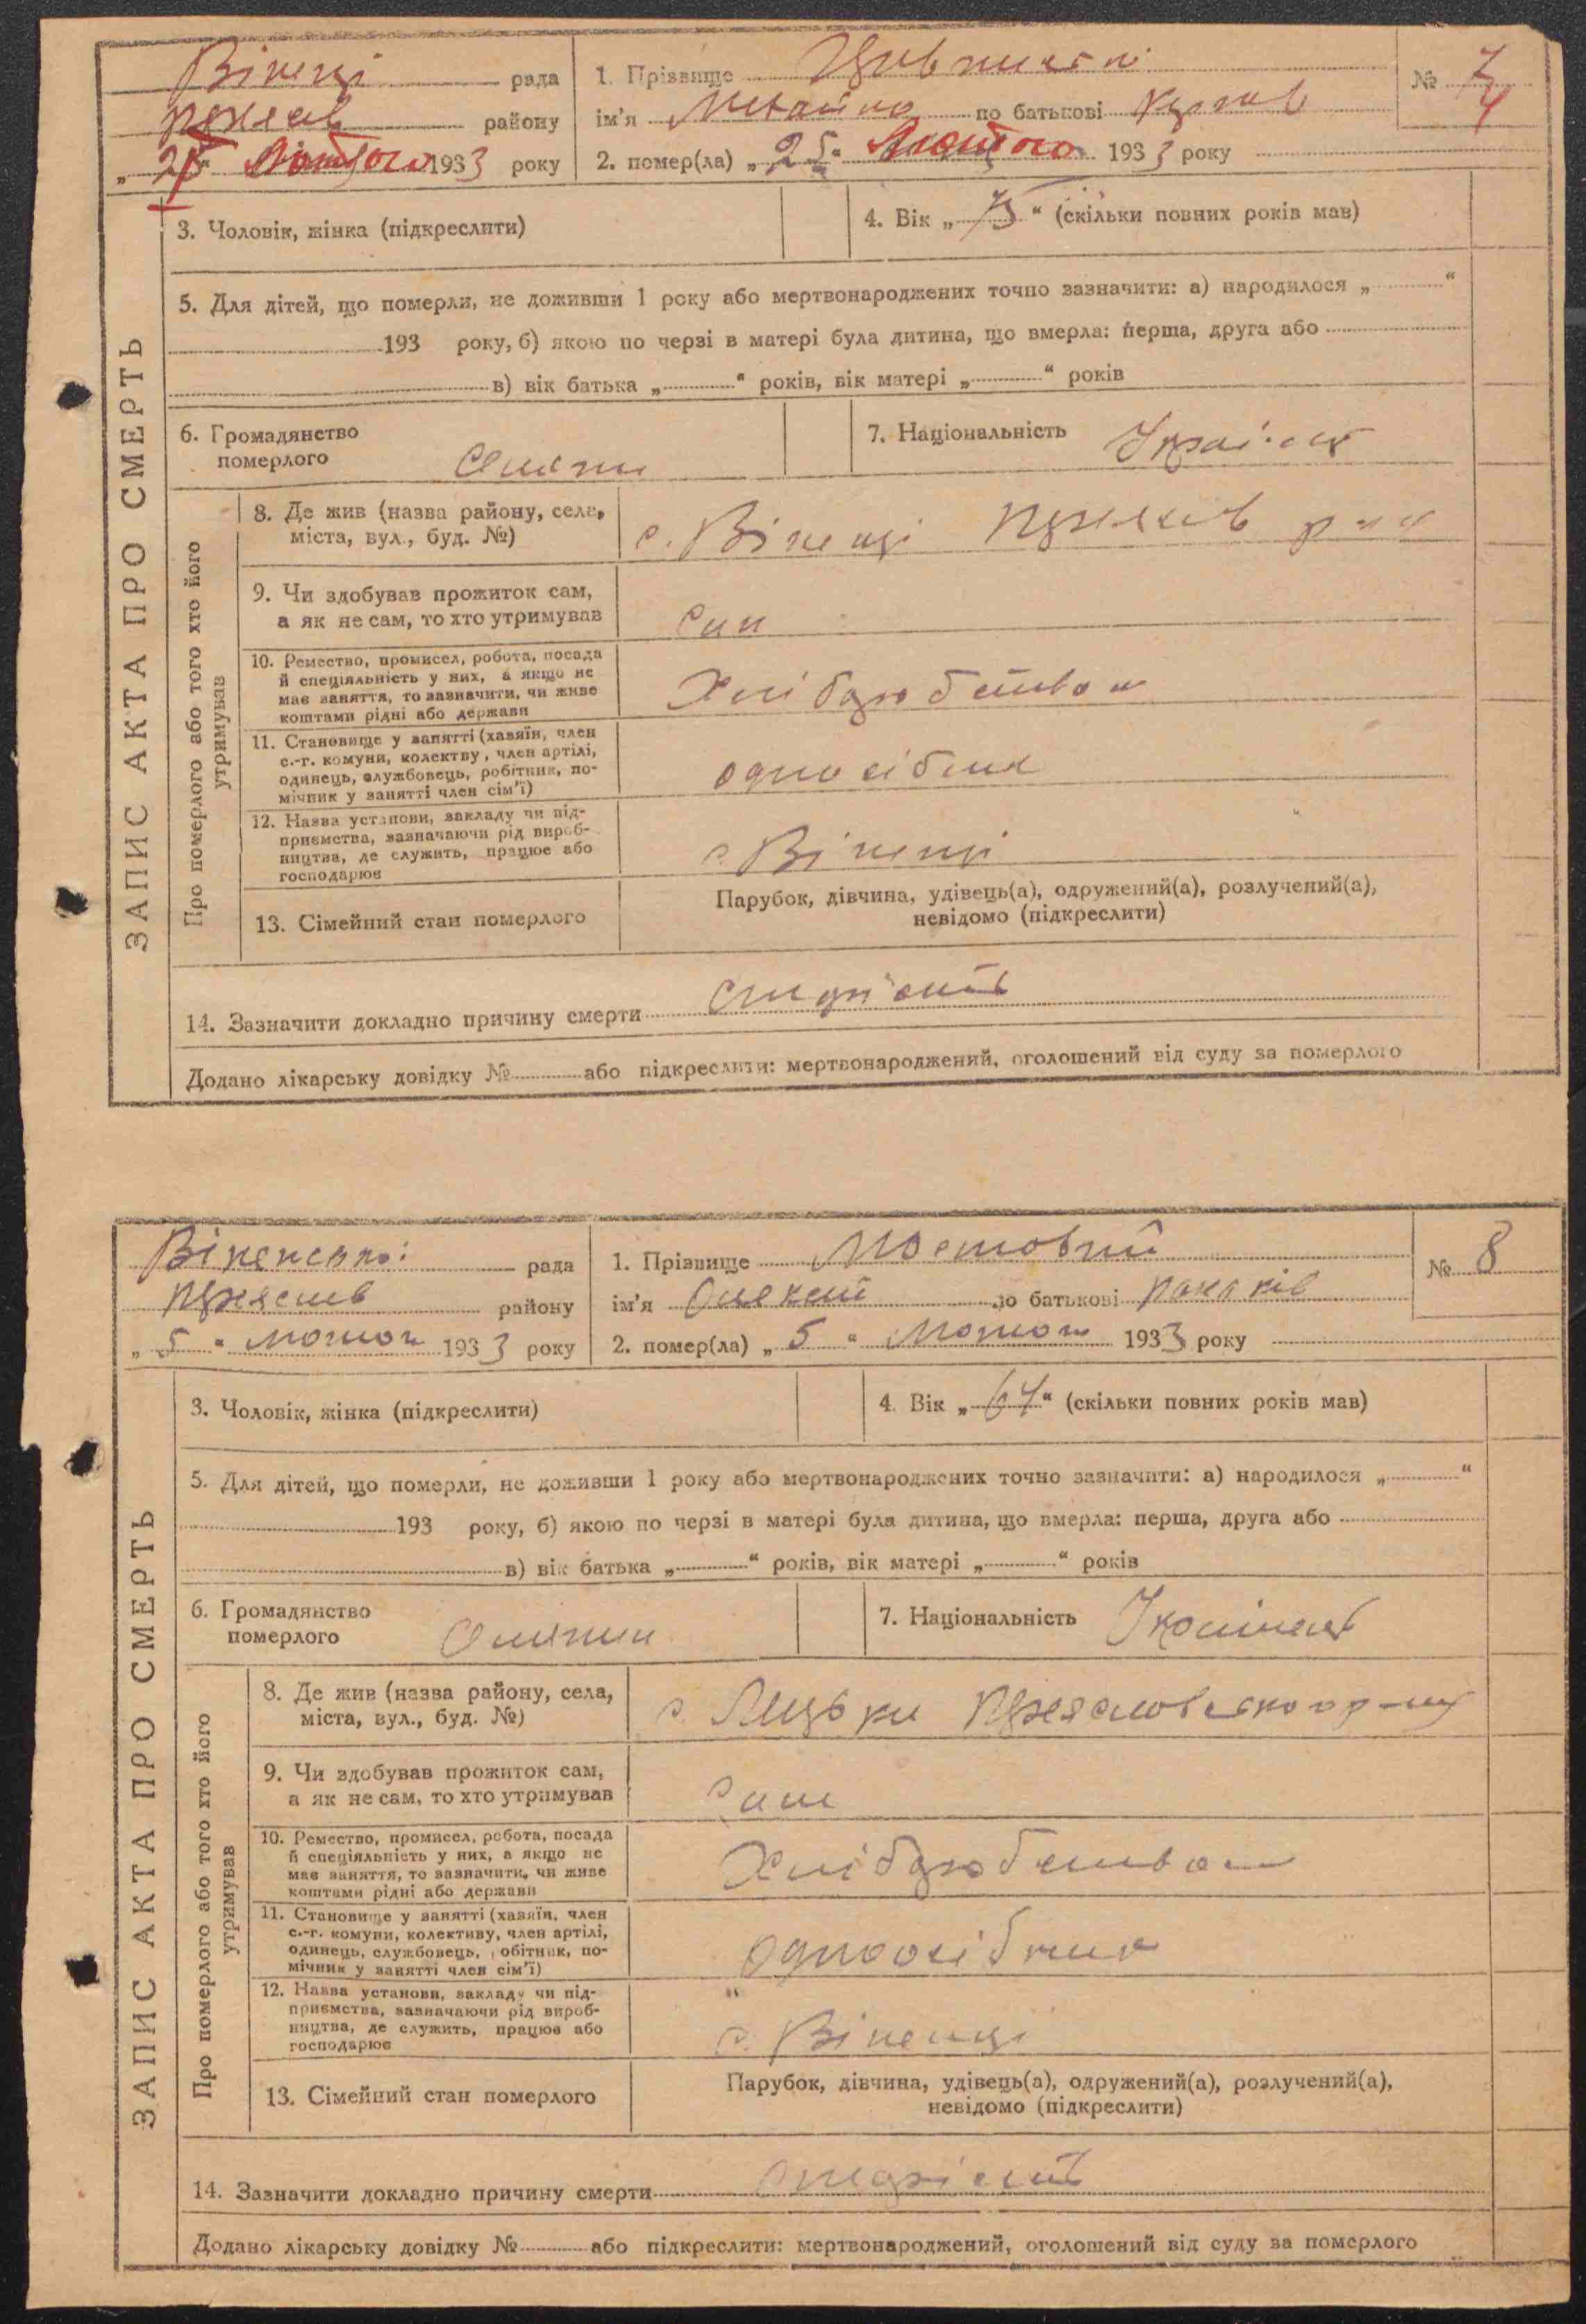 Віненці рада
району
„25“ Лютого 1933 року
1. Прізвище
№ 7
ім’я Михайло по батькові
2. помер(ла) „25“ Лютого 1933 року
ЗАПИС АКТА ПРО СМЕРТЬ
3. Чоловік, жінка (підкреслити)
4. Вік „75“ (скільки повних років мав)
5. Для дітей, що померли, не доживши 1 року або мертвонароджених точно зазначити: а) народилося „ “
193 року, б) якою по черзі в матері була дитина, що вмерла: перша, друга або
в) вік батька „ “ років, вік матері „ “ років
6. Громадянство
померлого
7. Національність
Про померлого або того хто його
утримував
8. Де жив (назва району, села,
міста, вул., буд. №)
с. Віненці
9. Чи здобував прожиток сам,
а як не сам, то хто утримував
10. Ремество, промисел, робота, посада
й спеціяльність у них, а якщо не
має заняття, то зазначити, чи живе
коштами рідні або держави
Хліборобством
11. Становище у занятті (хазяїн, член
с.-г. комуни, колектву, член артілі,
одинець, службовець, робітник, по-
мічник у занятті член сім’ї)
одноосібник
12. Назва установи, закладу чи під-
приємства, зазначаючи рід вироб-
ництва, де служить, працює або
господарює
с. Віненці
13. Сімейний стан померлого
Парубок, дівчина, удівець(а), одружений(а), розлучений(а),
невідомо (підкреслити)
14. Зазначити докладно причину смерти
Додано лікарську довідку № або підкреслити: мертвонароджений, оголошений від суду за померлого
рада
району
„5“ 1933 року
1. Прізвище Мостовий
№ 8
ім’я Олексій по батькові
2. помер(ла) „5“ 1933 року
ЗАПИС АКТА ПРО СМЕРТЬ
3. Чоловік, жінка (підкреслити)
4. Вік „64“ (скільки повних років мав)
5. Для дітей, що померли, не доживши 1 року або мертвонароджених точно зазначити: а) народилося „ “
193 року, б) якою по черзі в матері була дитина, що вмерла: перша, друга або
в) вік батька „ “ років, вік матері „ “ років
6. Громадянство
померлого
7. Національність
Про померлого або того хто його
утримував
8. Де жив (назва району, села,
міста, вул., буд. №)
с.
9. Чи здобував прожиток сам,
а як не сам, то хто утримував
сам
10. Ремество, промисел, робота, посада
й спеціяльність у них, а якщо не
має заняття, то зазначити, чи живе
коштами рідні або держави
Хліборобством
11. Становище у занятті (хазяїн, член
с.-г. комуни, колективу, член артілі,
одинець, службовець, робітник, по-
мічник у занятті член сім’ї)
одноосібник
12. Назва установи, закладу чи під-
приємства, зазначаючи рід вироб-
ництва, де служить, працює або
господарює
с. Віненці
13. Сімейний стан померлого
Парубок, дівчина, удівець(а), одружений(а), розлучений(а),
невідомо (підкреслити)
14. Зазначити докладно причину смерти старість
Додано лікарську довідку № або підкреслити: мертвонароджений, оголошений від суду за померлого